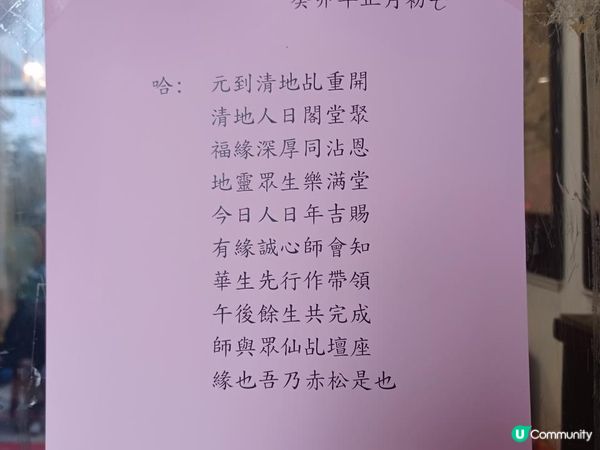 癸卯年正月初七
哈：元到清地乩重開
清地人日閣堂聚
福緣深厚同沾恩
地靈眾生樂滿堂
今日人日年吉賜
有緣誠心師會知
華生先行作帶領
午後餘生共完成
師與眾仙乩壇座
緣也吾乃赤松是也
U Community